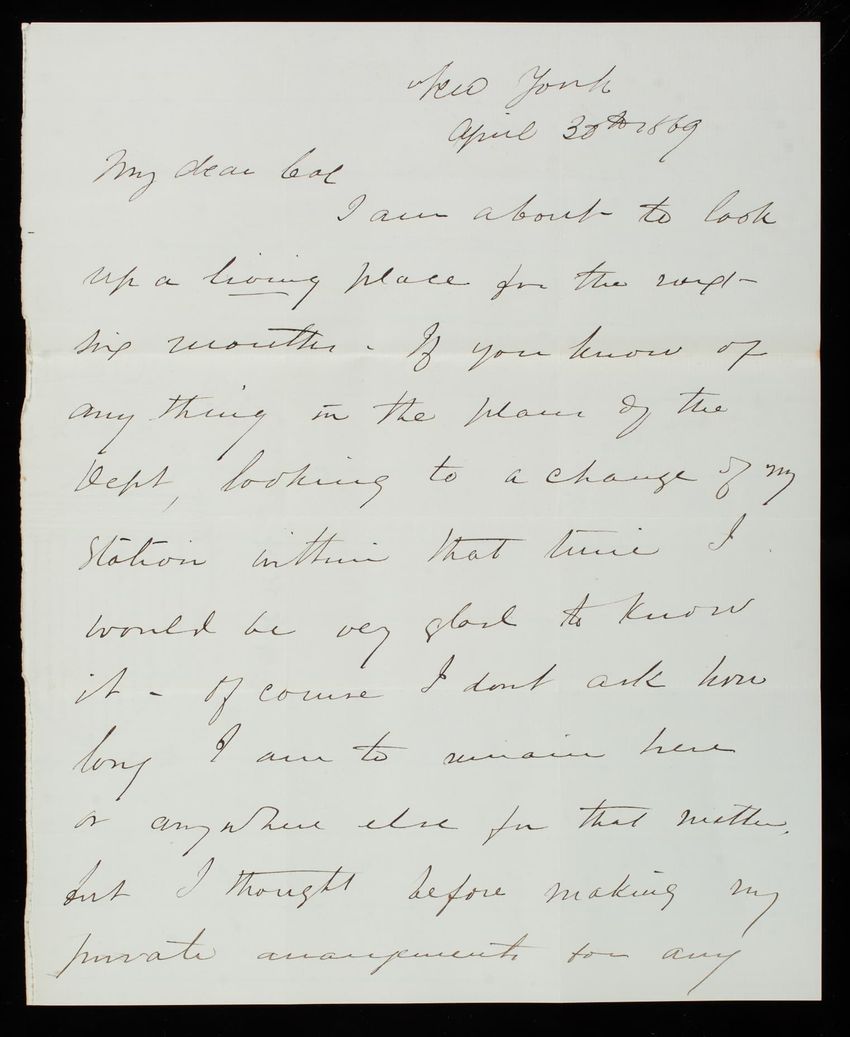 New York
April 30th 1869
My dear Col
I am about to look
up a living place for the next
six months - If you know of
any thing in the plans of the
Dept, looking to a change of my
Station within that time I
would be very glad to know
it - Of course I dont ask how
long I am to remain here
or anywhere else for that matter,
but I thought before making my
private arrangements for any